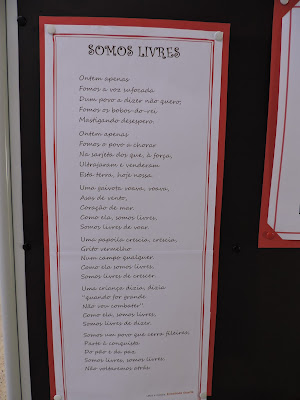 SOMOS LIVRES
Ontem apenas
Fomos a voz sufocada
Dum povo a dizer não quero;
Fomos os bobos-do-rei
Mastigando desespero.
Ontem apenas
Fomos o povo a chorar
Na sarjeta dos que, à força,
Ultrajaram e venderam
Esta terra, hoje nossa.
Uma gaivota voava, voava,
Asas de vento,
Coração de mar.
Como ela, somos livres,
Somos livres de voar.
Uma papoila crescia, crescia,
Grito vermelho
Num campo qualquer.
Como ela somos livres,
Somos livres de crescer.
Uma criança dizia, dizia
"quando for grande
Não vou combater".
Como ela, somos livres,
Somos livres de dizer.
Somos um povo que cerra fileiras,
Parte à conquista
Do pão e da paz.
Somos livres, somos livres,
Não voltaremos atrás.